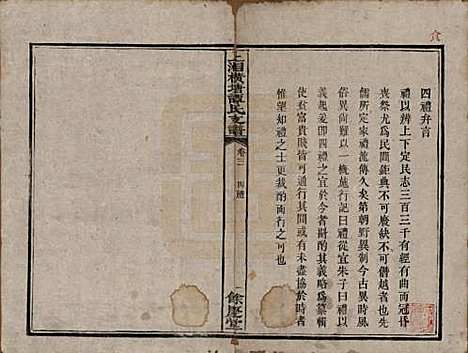 四禮弁言
禮以辨上下定民志三百三千有經有曲而冠昏
喪祭尤為民間鉅典不可廢缺不可僭越者也世
儒所定家禮流傳久矣第朝野異制今古異時風
俗異尚難以一概施行記曰禮從宜朱子曰禮以
義起爰即四禮之宜於今者斟酌其義略為纂輯
使貧富貴賤皆可通行其間或有未盡協於時者
惟望知禮之士更裁酌而行之可也
上湘橫塘譚氏支譜
卷三
四禮
餘慶堂